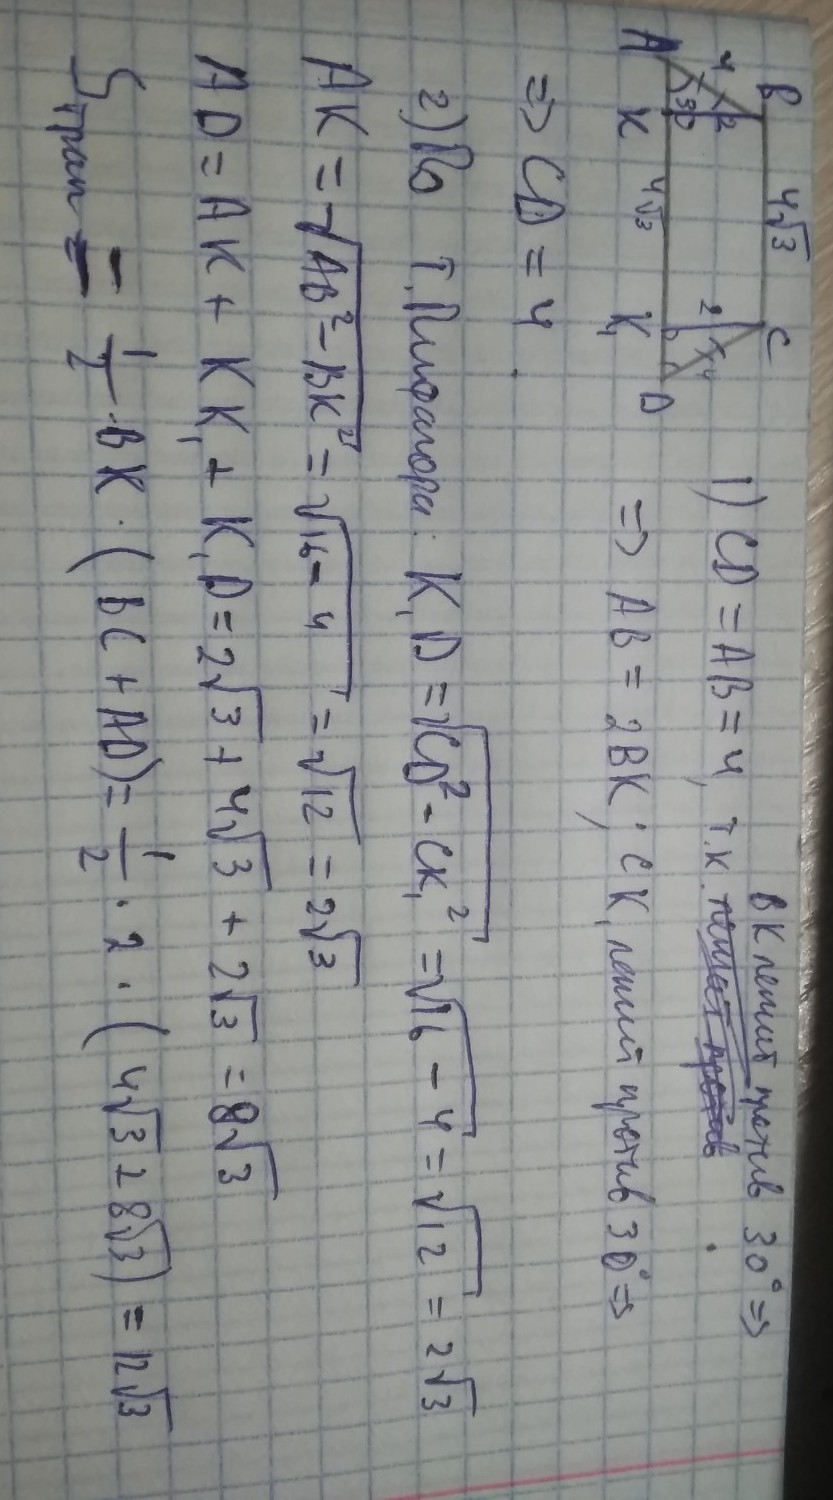 B 4√3 C
4 2 2 4
A 30° K 4√3 K₁ D
BK лежит против 30° =>
1) CD = AB = 4, т.к. лежит против
=> AB = 2BK; CK₁ лежит против 30° =>
=> CD = 4.
2) По т. Пифагора: K₁D = √CD² - CK₁² = √16 - 4 = √12 = 2√3
AK = √AB² - BK² = √16 - 4 = √12 = 2√3
AD = AK + KK₁ + K₁D = 2√3 + 4√3 + 2√3 = 8√3
Sтрап = 1/2 · BK · (BC + AD) = 1/2 · 2 · (4√3 + 8√3) = 12√3